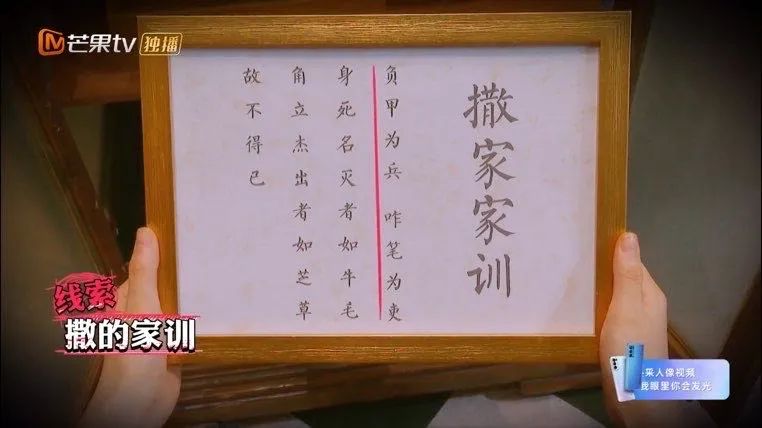 芒果tv 独播
撒家家训
负甲为兵 咋笔为吏
身死名灭者如牛毛
角立杰出者如芝草
故不得已
线索
撒的家训
采人像视频
我眼里你会发光